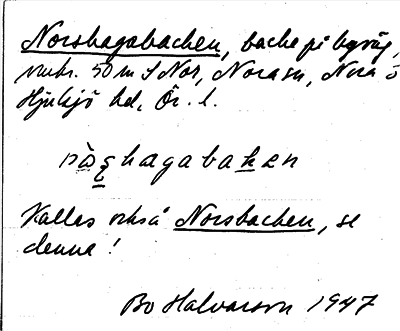 Norshagabacken, backe på byväg,
omkr. 50 m S Nor, Nora sn, Nora o
Hjulsjö hd, Ör. l.
nàʂhagabakən
Kallas också Norsbacken, se
denna!
Bo Halvarson 1947